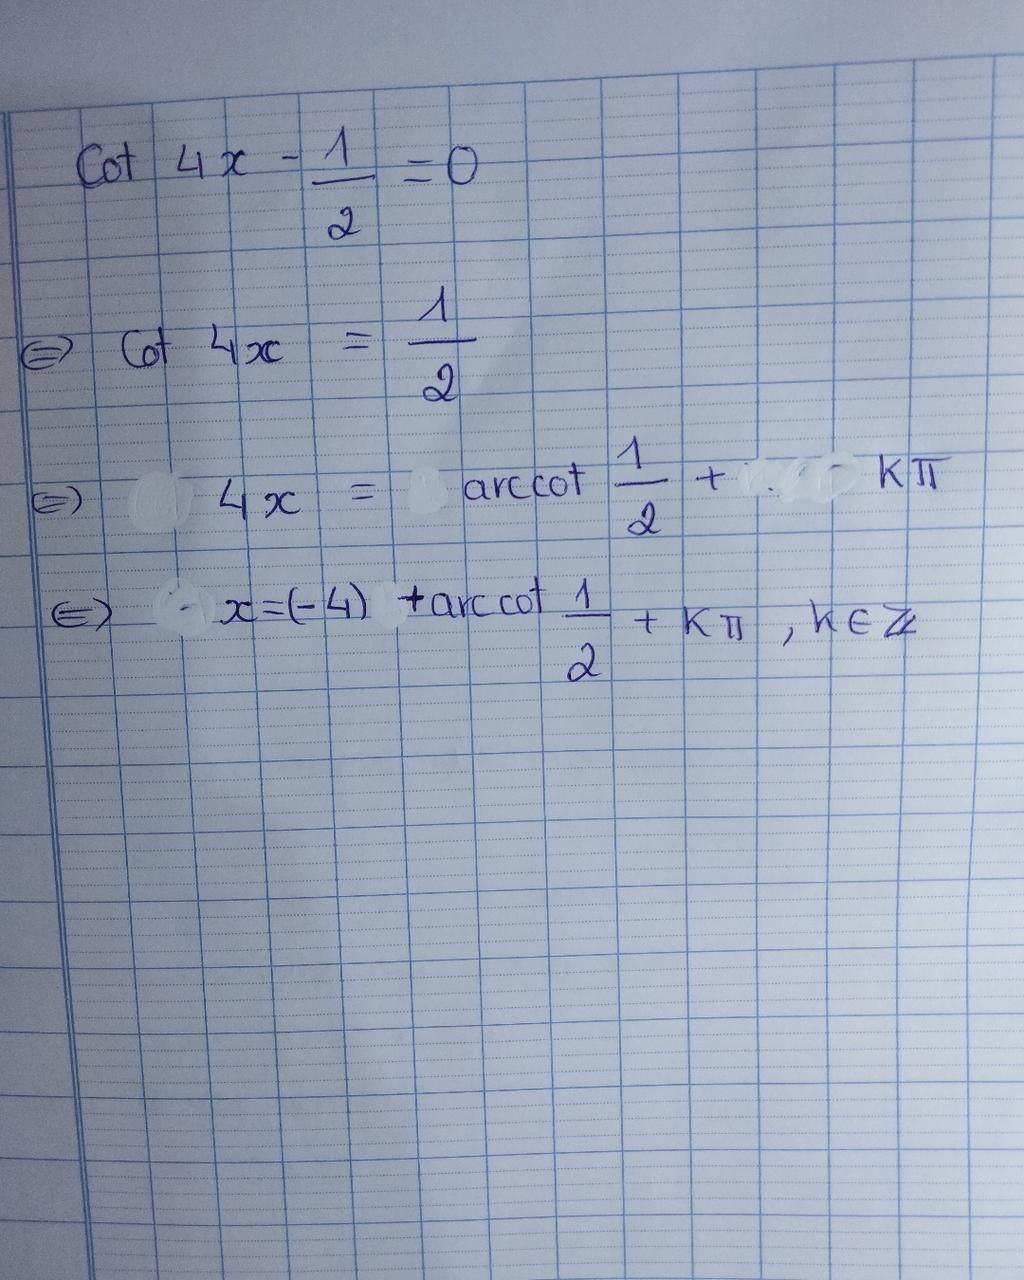 Cot 4x - 1/2 = 0
⇔ Cot 4x = 1/2
⇔ 4x = arccot 1/2 + kπ
⇔ x = (-4) + arccot 1/2 + kπ, k ∈ ℤ